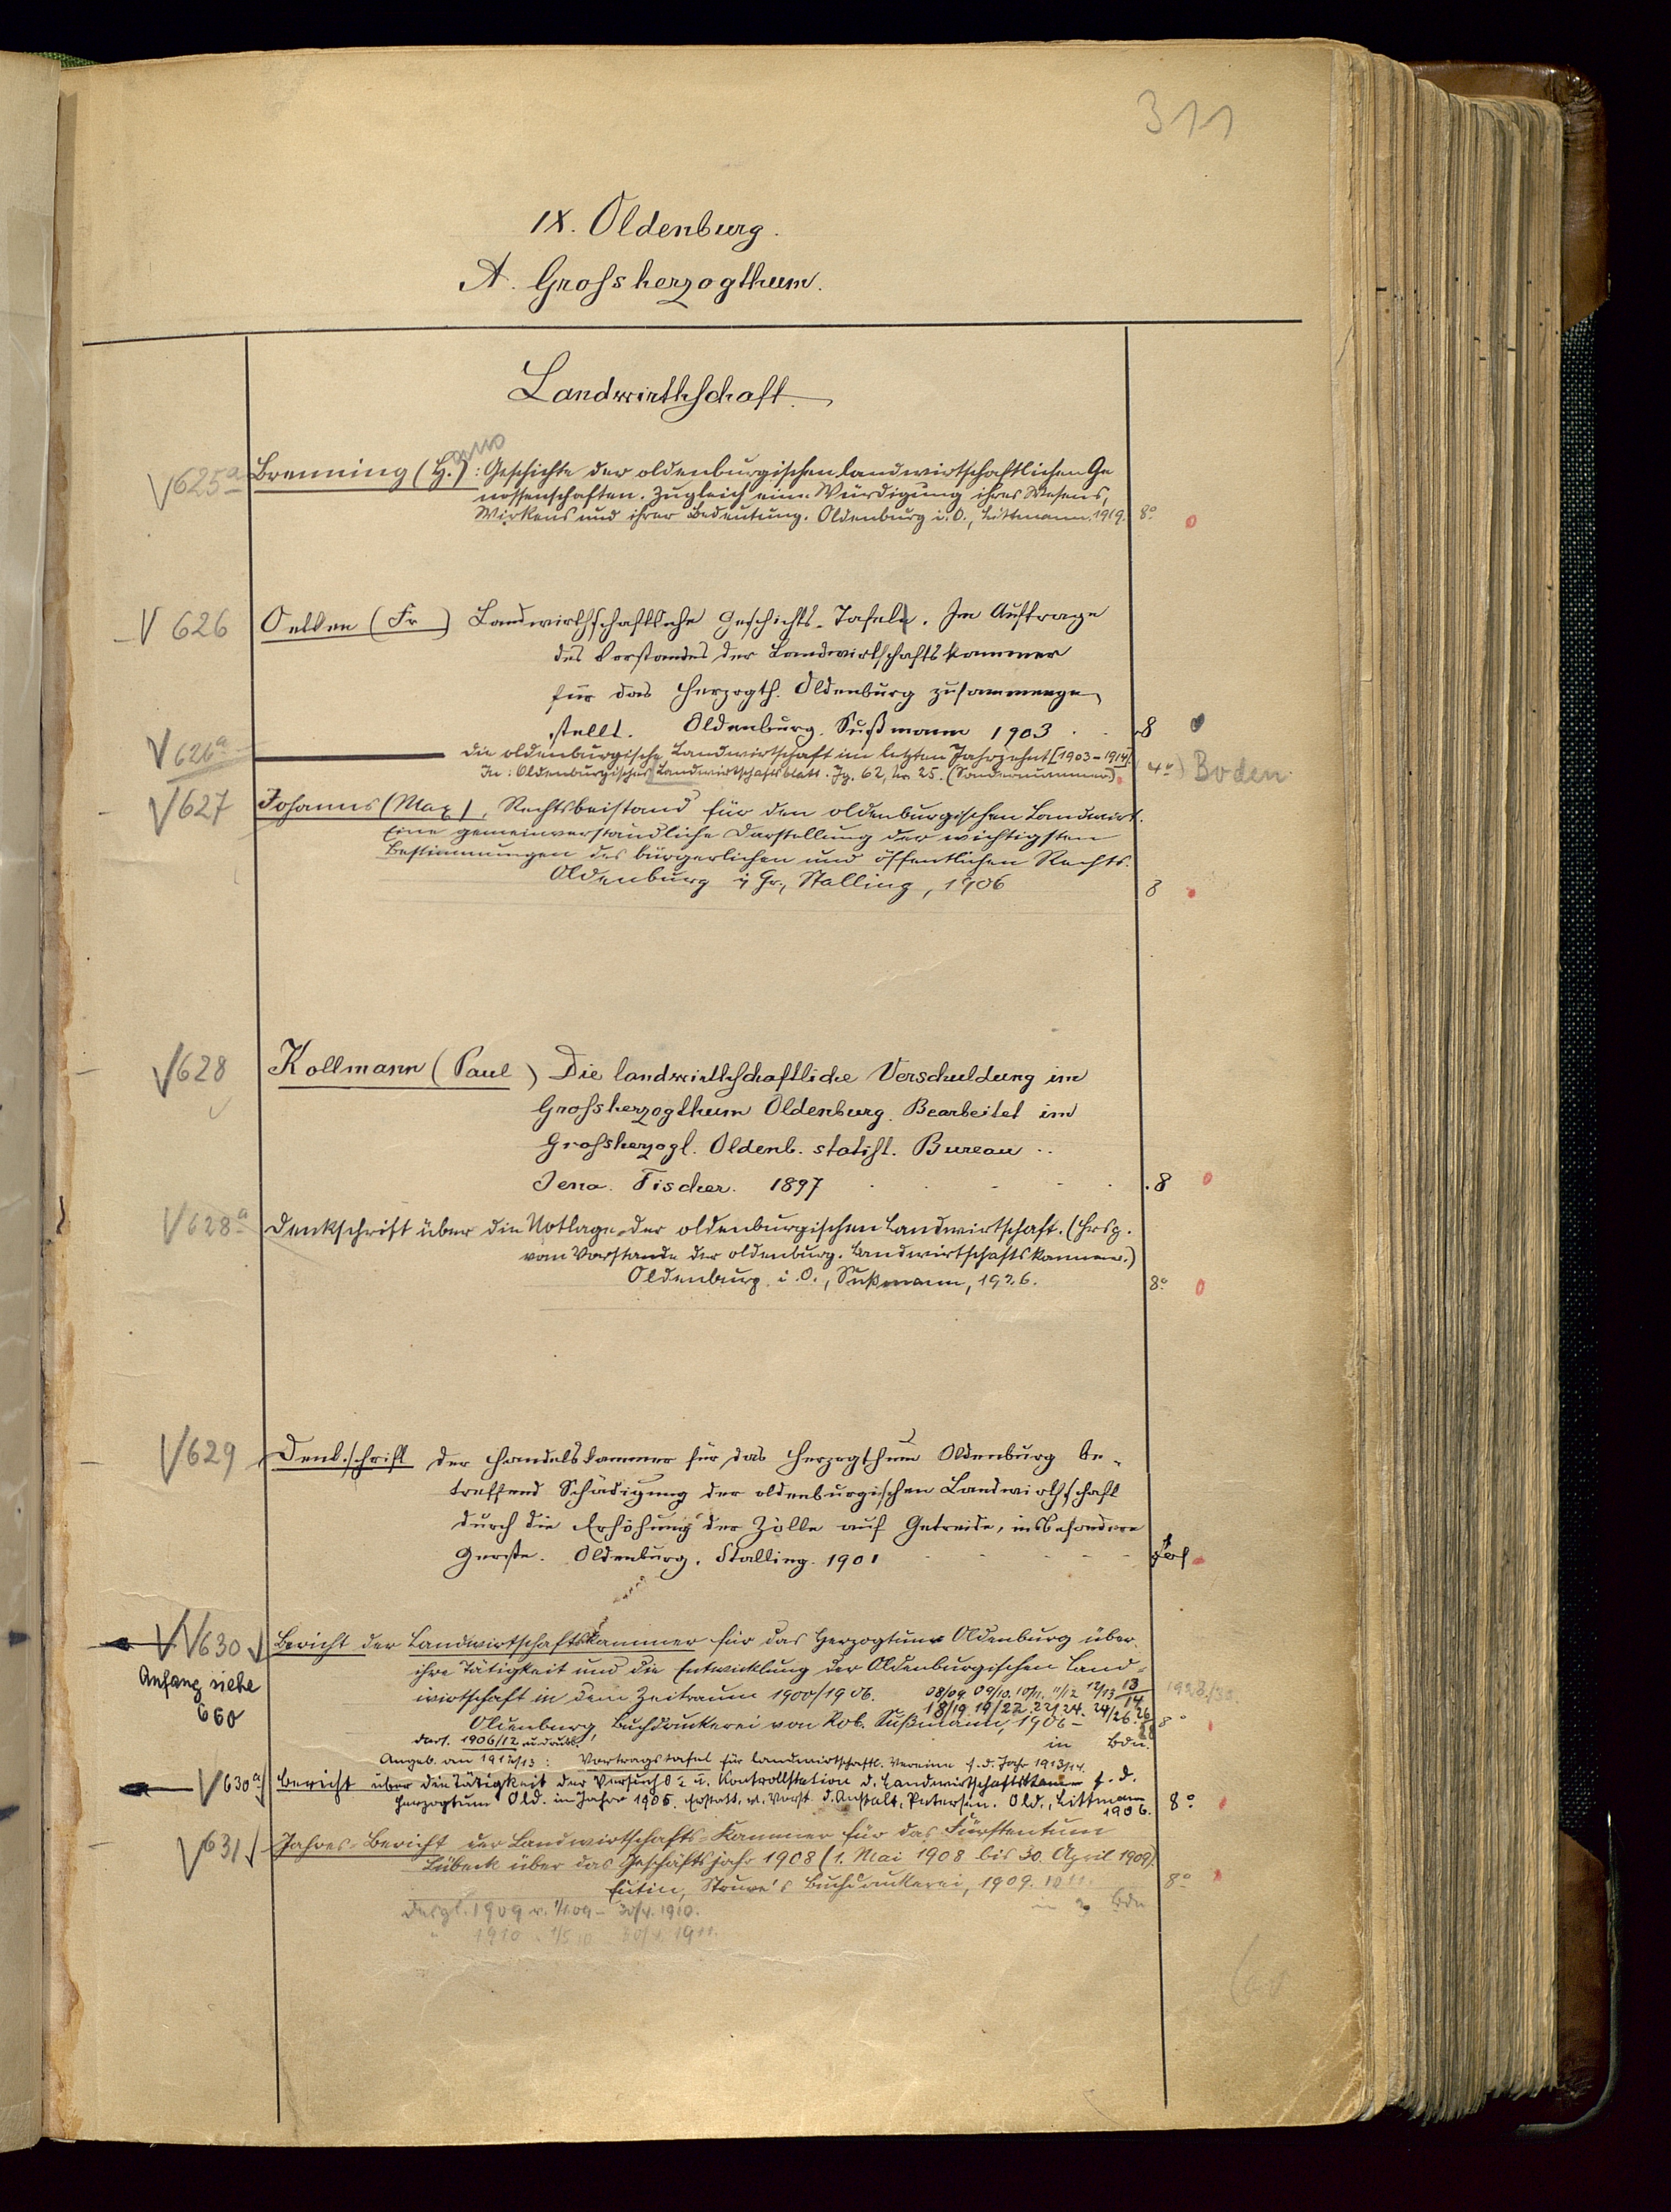 311
IX. Oldenburg.
A. Grossherzogthum.
Landwirthschaft.
V625a Brenning (H.anns): Geschichte der oldenburgischen landwirtschaftlichen Ge
nossenschaften. Zugleich eine Würdigung ihres Wesens,
Wirkens und ihrer Bedeutung. Oldenburg i. O., Littmann, 1919. 8°
V 626 Oetken (Fr ) Landwirthschaftliche Geschichts-Tafeln. Im Auftrage
des Vorstandes der Landwirthschaftskammer
für das Herzogth. Oldenburg zusammenge
stellt. Oldenburg. Sußmann 1903 . . 8
V 626a ——— Die oldenburgische Landwirtschaft im letzten Jahrzehnt [1903–1914].
In: Oldenburgisches Landwirtschaftsblatt. Jg. 62, Nr 25. (Sondernummer). 4°) Boden
V627 Johanns (Max), Rechtsbeistand für den oldenburgischen Landwirt.
Eine gemeinverständliche Darstellung der wichtigsten
Bestimmungen des bürgerlichen und öffentlichen Rechts.
Oldenburg i Gr., Stalling, 1906 8
V628 Kollmann (Paul ) Die landwirthschaftliche Verschuldung im
Grossherzogthum Oldenburg. Bearbeitet im
Grossherzogl. Oldenb. statist. Bureau ..
Jena. Fischer. 1897 . 8
V628a Denkschrift über die Notlage der oldenburgischen Landwirtschaft. (Hrsg.
vom Vorstande der oldenburg. Landwirtschaftskammer.)
Oldenburg i. O., Sußmann, 1926. 8°
V629 Denkschrift der Handelskammer für das Herzogthum Oldenburg be-
treffend Schädigung der oldenburgischen Landwirthschaft
durch die Erhöhung der Zölle auf Getreide, insbesondere
Gerste. Oldenburg. Stalling. 1901 Fol
V V630 Bericht der Landwirtschaftskammer für das Herzogtum Oldenburg über
Anfang siehe
660
ihre Tätigkeit und die Entwicklung der Oldenburgischen Land-
wirtschaft in dem Zeitraum 1900/1906. 08/09. 09/10. 10/11. 11/12 12/13 13/14 1928/30.
18/19. 19/22. 22/24. 24/26. 26/28
Oldenburg, Buchdruckerei von Rob. Sußmann, 1906– 8°
Dass. 1906/12 in Bdn.
Angeb. an 1912/13: Vortragstafel für landwirtschaftl. Vereine f. d. Jahr 1913/14.
V630a Bericht über die Tätigkeit der Versuchs- u. Kontrollstation d. Landwirtschaftskammer f. d.
Herzogtum Old. im Jahre 1905. Erstatt. v. Vorst. d. Anstalt, Petersen. Old., Littmann
1906. 8°
V631 Jahres-Bericht der Landwirtschafts-Kammer für das Fürstentum
Lübeck über das Geschäftsjahr 1908 (1. Mai 1908 bis 30. April 1909).
Eutin, Struve's Buchdruckerei, 1909. 8°
Desgl. 1909 v. 1/5.09 – 30/4. 1910. in Bdn
" 1910 " 1/5 10 30/4. 1911.